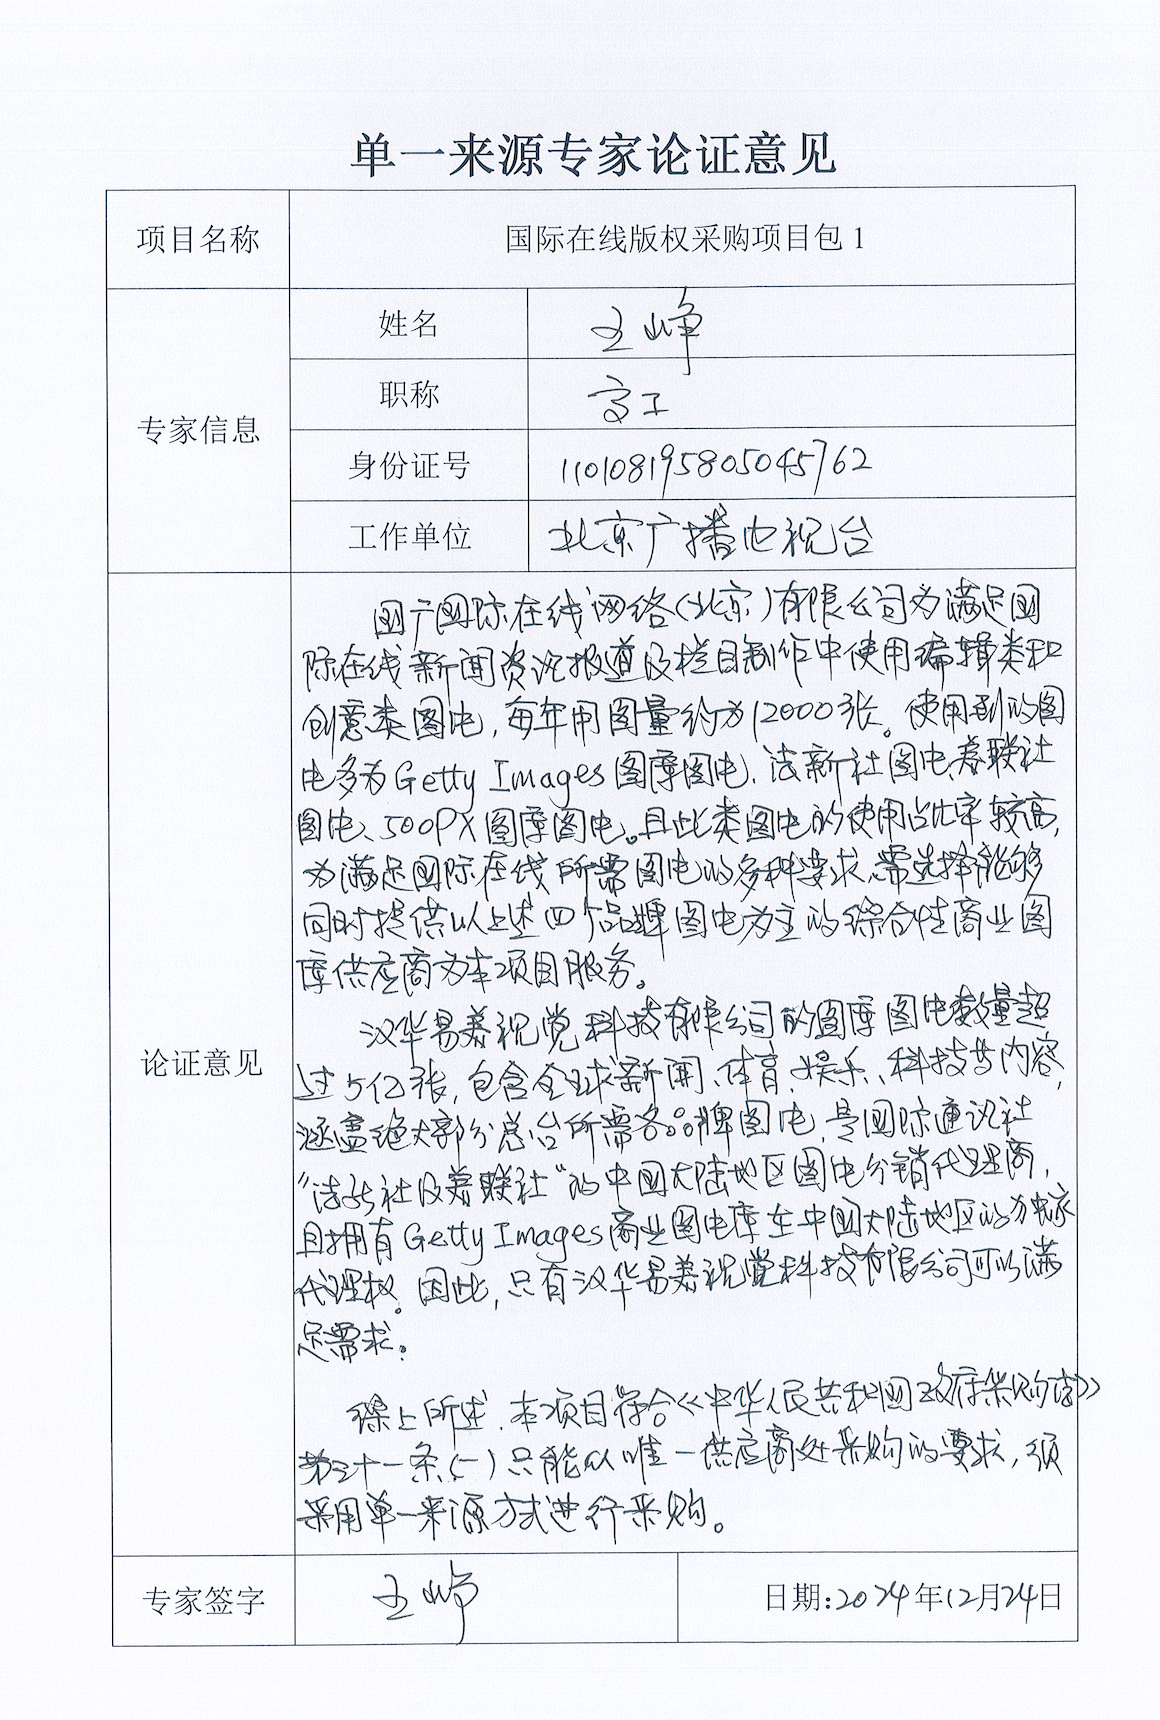 单一来源专家论证意见
项目名称 国际在线版权采购项目包1
专家信息
姓名 王峥
职称 高工
身份证号 110108195805045762
工作单位 北京广播电视台
论证意见
国广国际在线网络(北京)有限公司为满足国
际在线新闻资讯报道及栏目制作中使用编辑类和
创意类图片,每年用图量约为12000张。使用到的图
片多为Getty Images图库图片、法新社图片、美联社
图片、500PX图库图片。且此类图片的使用占比率较高,
为满足国际在线所需图片的多种要求,需选择能够
同时提供以上述四个品牌图片为主的综合性商业图
库供应商为本项目服务。
汉华易美视觉科技有限公司的图库图片数量超
过5亿张,包含全球新闻、体育、娱乐、科技等内容,
涵盖绝大部分总台所需各品牌图片,是国际通讯社
“法新社及美联社”的中国大陆地区图片分销代理商,
且拥有Getty Images商业图片库在中国大陆地区的独家
代理权。因此,只有汉华易美视觉科技有限公司可以满
足需求。
综上所述,本项目符合《中华人民共和国政府采购法》
第三十一条(一)只能从唯一供应商处采购的要求,须
采用单一来源方式进行采购。
专家签字 王峥 日期:2024年12月24日